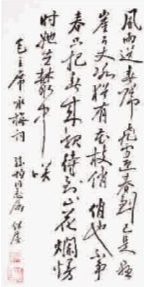 風雨送春歸飛雪迎春到已是懸
崖百丈冰猶有花枝俏俏也不爭
春只把春來報待到山花爛熳
時她在叢中笑
毛主席詠梅詞
同志屬